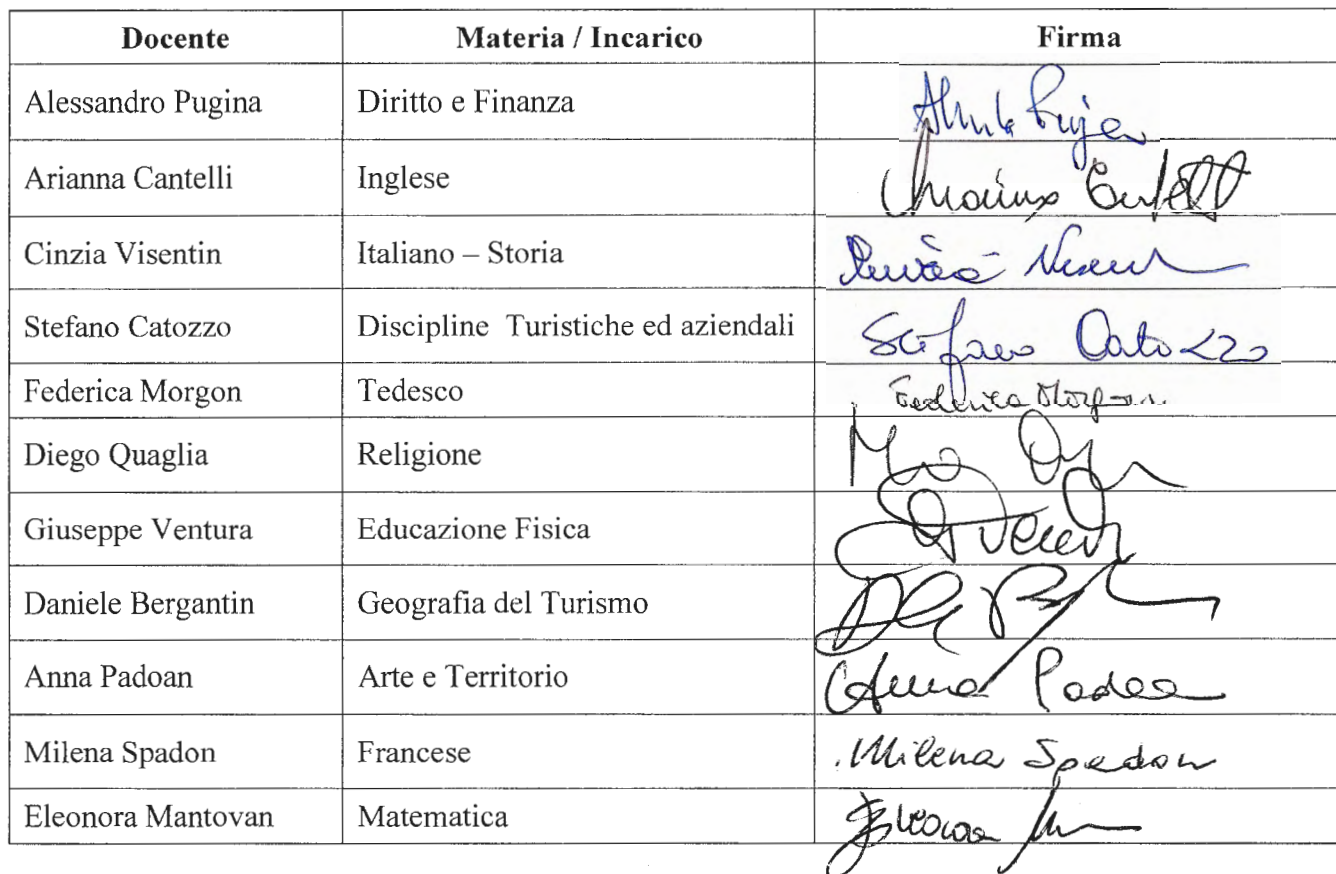 Docente Materia / Incarico Firma
Alessandro Pugina Diritto e Finanza
Arianna Cantelli Inglese
Cinzia Visentin Italiano – Storia
Stefano Catozzo Discipline Turistiche ed aziendali Stefano Catozzo
Federica Morgon Tedesco Federica Morgon
Diego Quaglia Religione
Giuseppe Ventura Educazione Fisica
Daniele Bergantin Geografia del Turismo
Anna Padoan Arte e Territorio Anna Padoan
Milena Spadon Francese Milena Spadon
Eleonora Mantovan Matematica